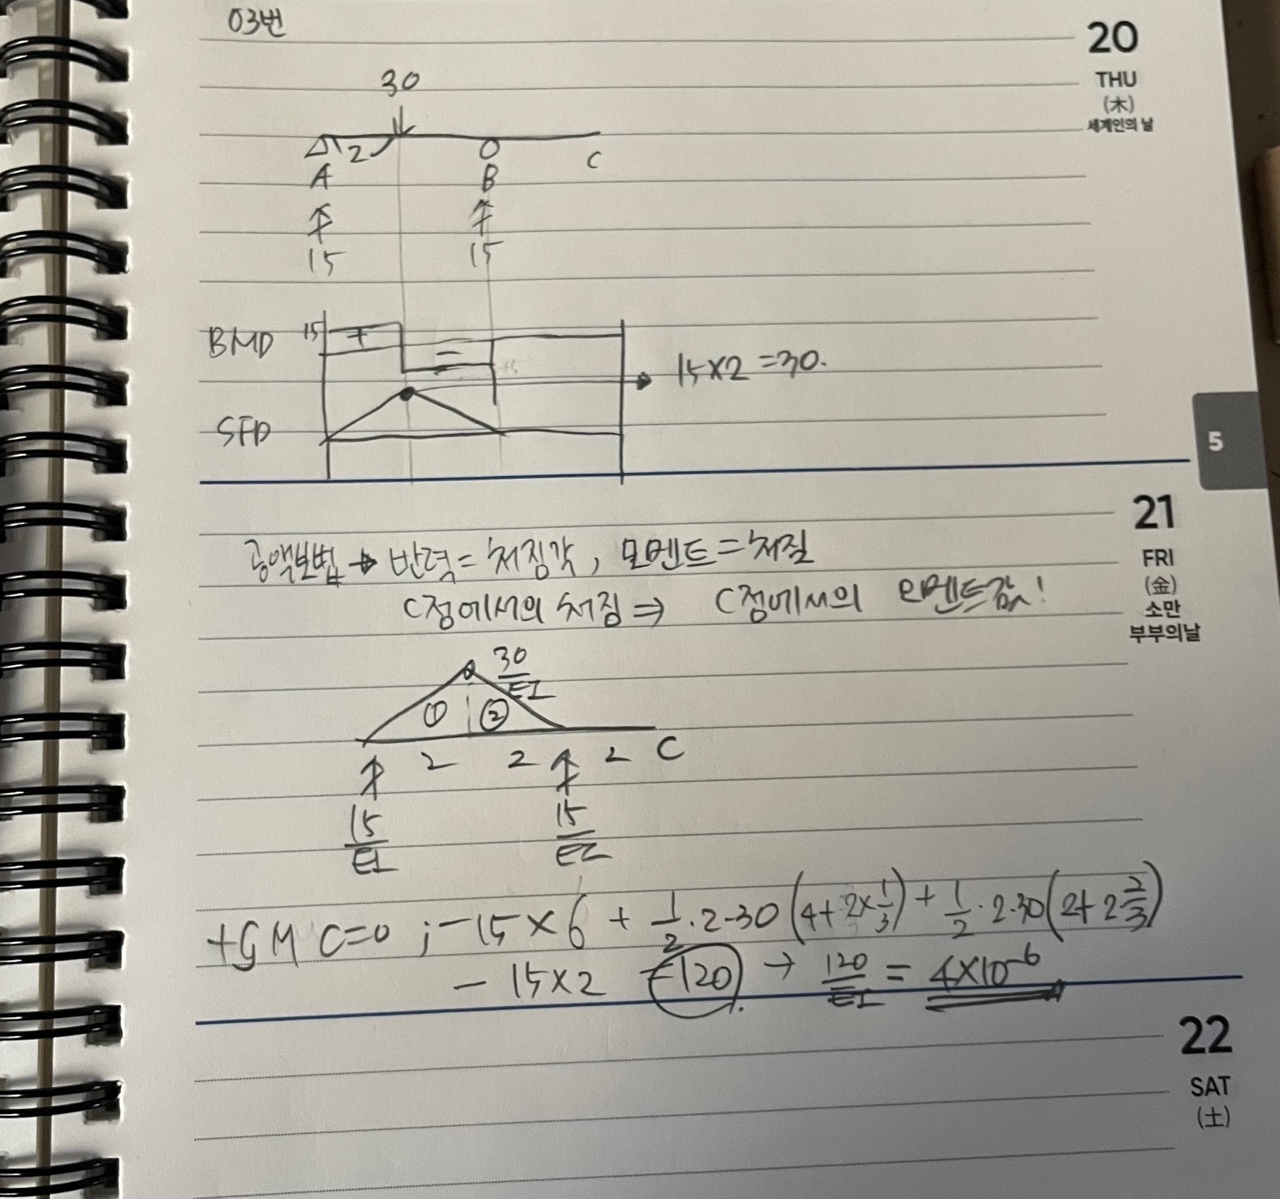 03번
20
THU
(木)
세계인의 날
30
2
A
B
C
15
15
BMD
15
+
-
15×2=30.
SFD
5
21
FRI
(金)
소만
부부의날
공액보법 → 반력=처짐각, 모멘트=처짐
C점에서의 처짐 ⇒ C점에서의 모멘트값!
30/EI
① ②
2 2 2 C
15/EI
15/EI
+G M C=0 ; -15×6 + 1/2·2·30(4+2×1/3) + 1/2·2·30(2+2 2/3)
- 15×2 =120 → 120/EI = 4×10⁻⁶
22
SAT
(土)